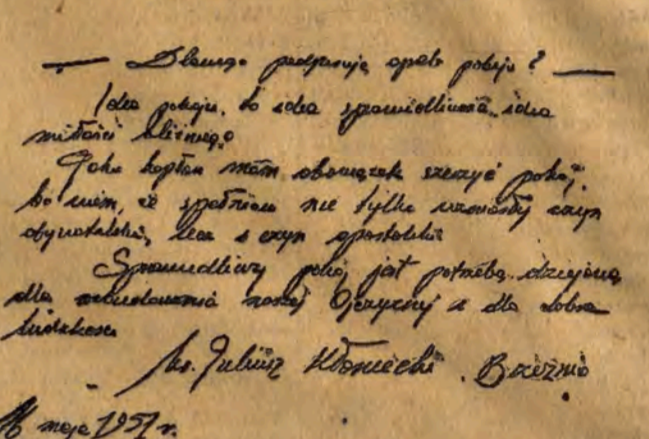 — Dlaczego podpisuję apel pokoju? —
Idea pokoju, to idea sprawiedliwości, idea
miłości bliźniego.
Jako kapłan mam obowiązek szerzyć pokój,
bo wiem, że spełniam nie tylko wzniosły czyn
obywatelski, lecz i czyn apostolski
Sprawiedliwy pokój jest potrzebą dziejową
dla odbudowania naszej Ojczyzny i dla dobra
ludzkości
ks. Juliusz Brzeźnio
16 maja 1951 r.